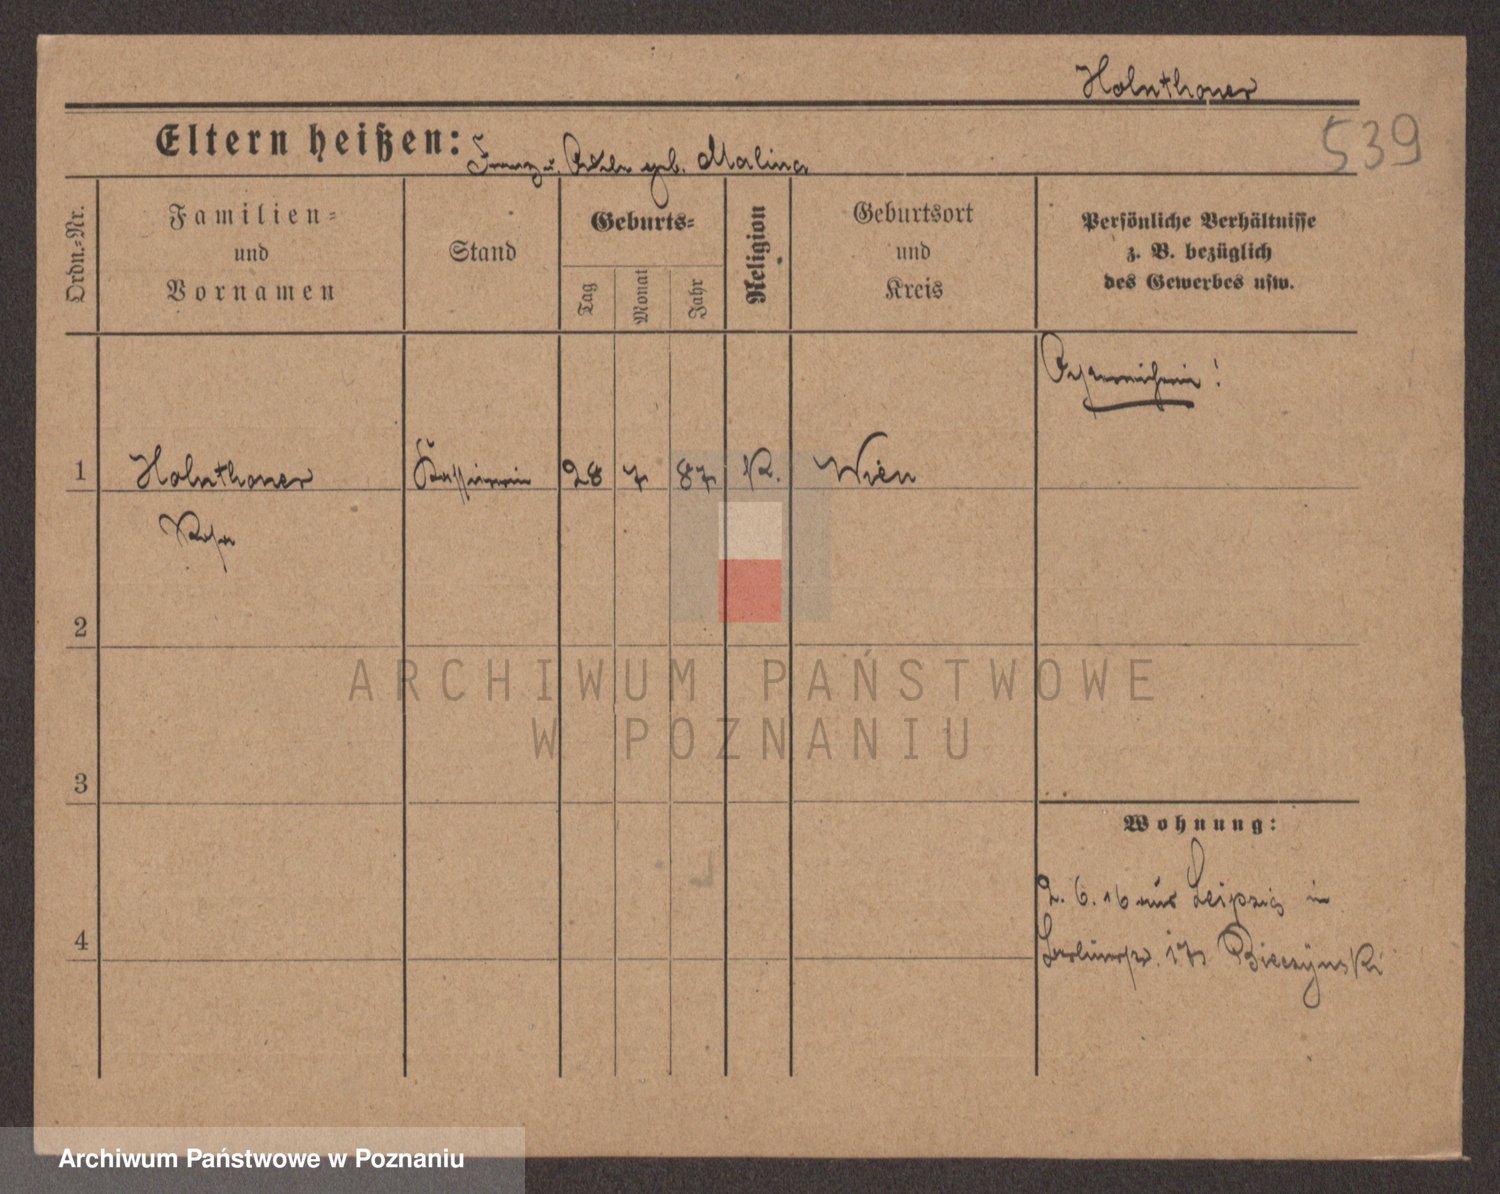 Holnthoner
539
Eltern heißen: Franz u. geb. Malina
Ordn.-Nr.
Familien-
und
Vornamen
Stand
Geburts-
Tag
Monat
Jahr
Religion
Geburtsort
und
Kreis
Persönliche Verhältnisse
z. B. bezüglich
des Gewerbes usw.
Österreicherin!
1 Holnthoner Kassiererin 28 7 87 K. Wien
Rosa
2
ARCHIWUM PAŃSTWOWE
W POZNANIU
3
Wohnung:
2. 6. 16 aus Leipzig in
4
Berlinerstr. 17 Bieczynski
Archiwum Państwowe w Poznaniu